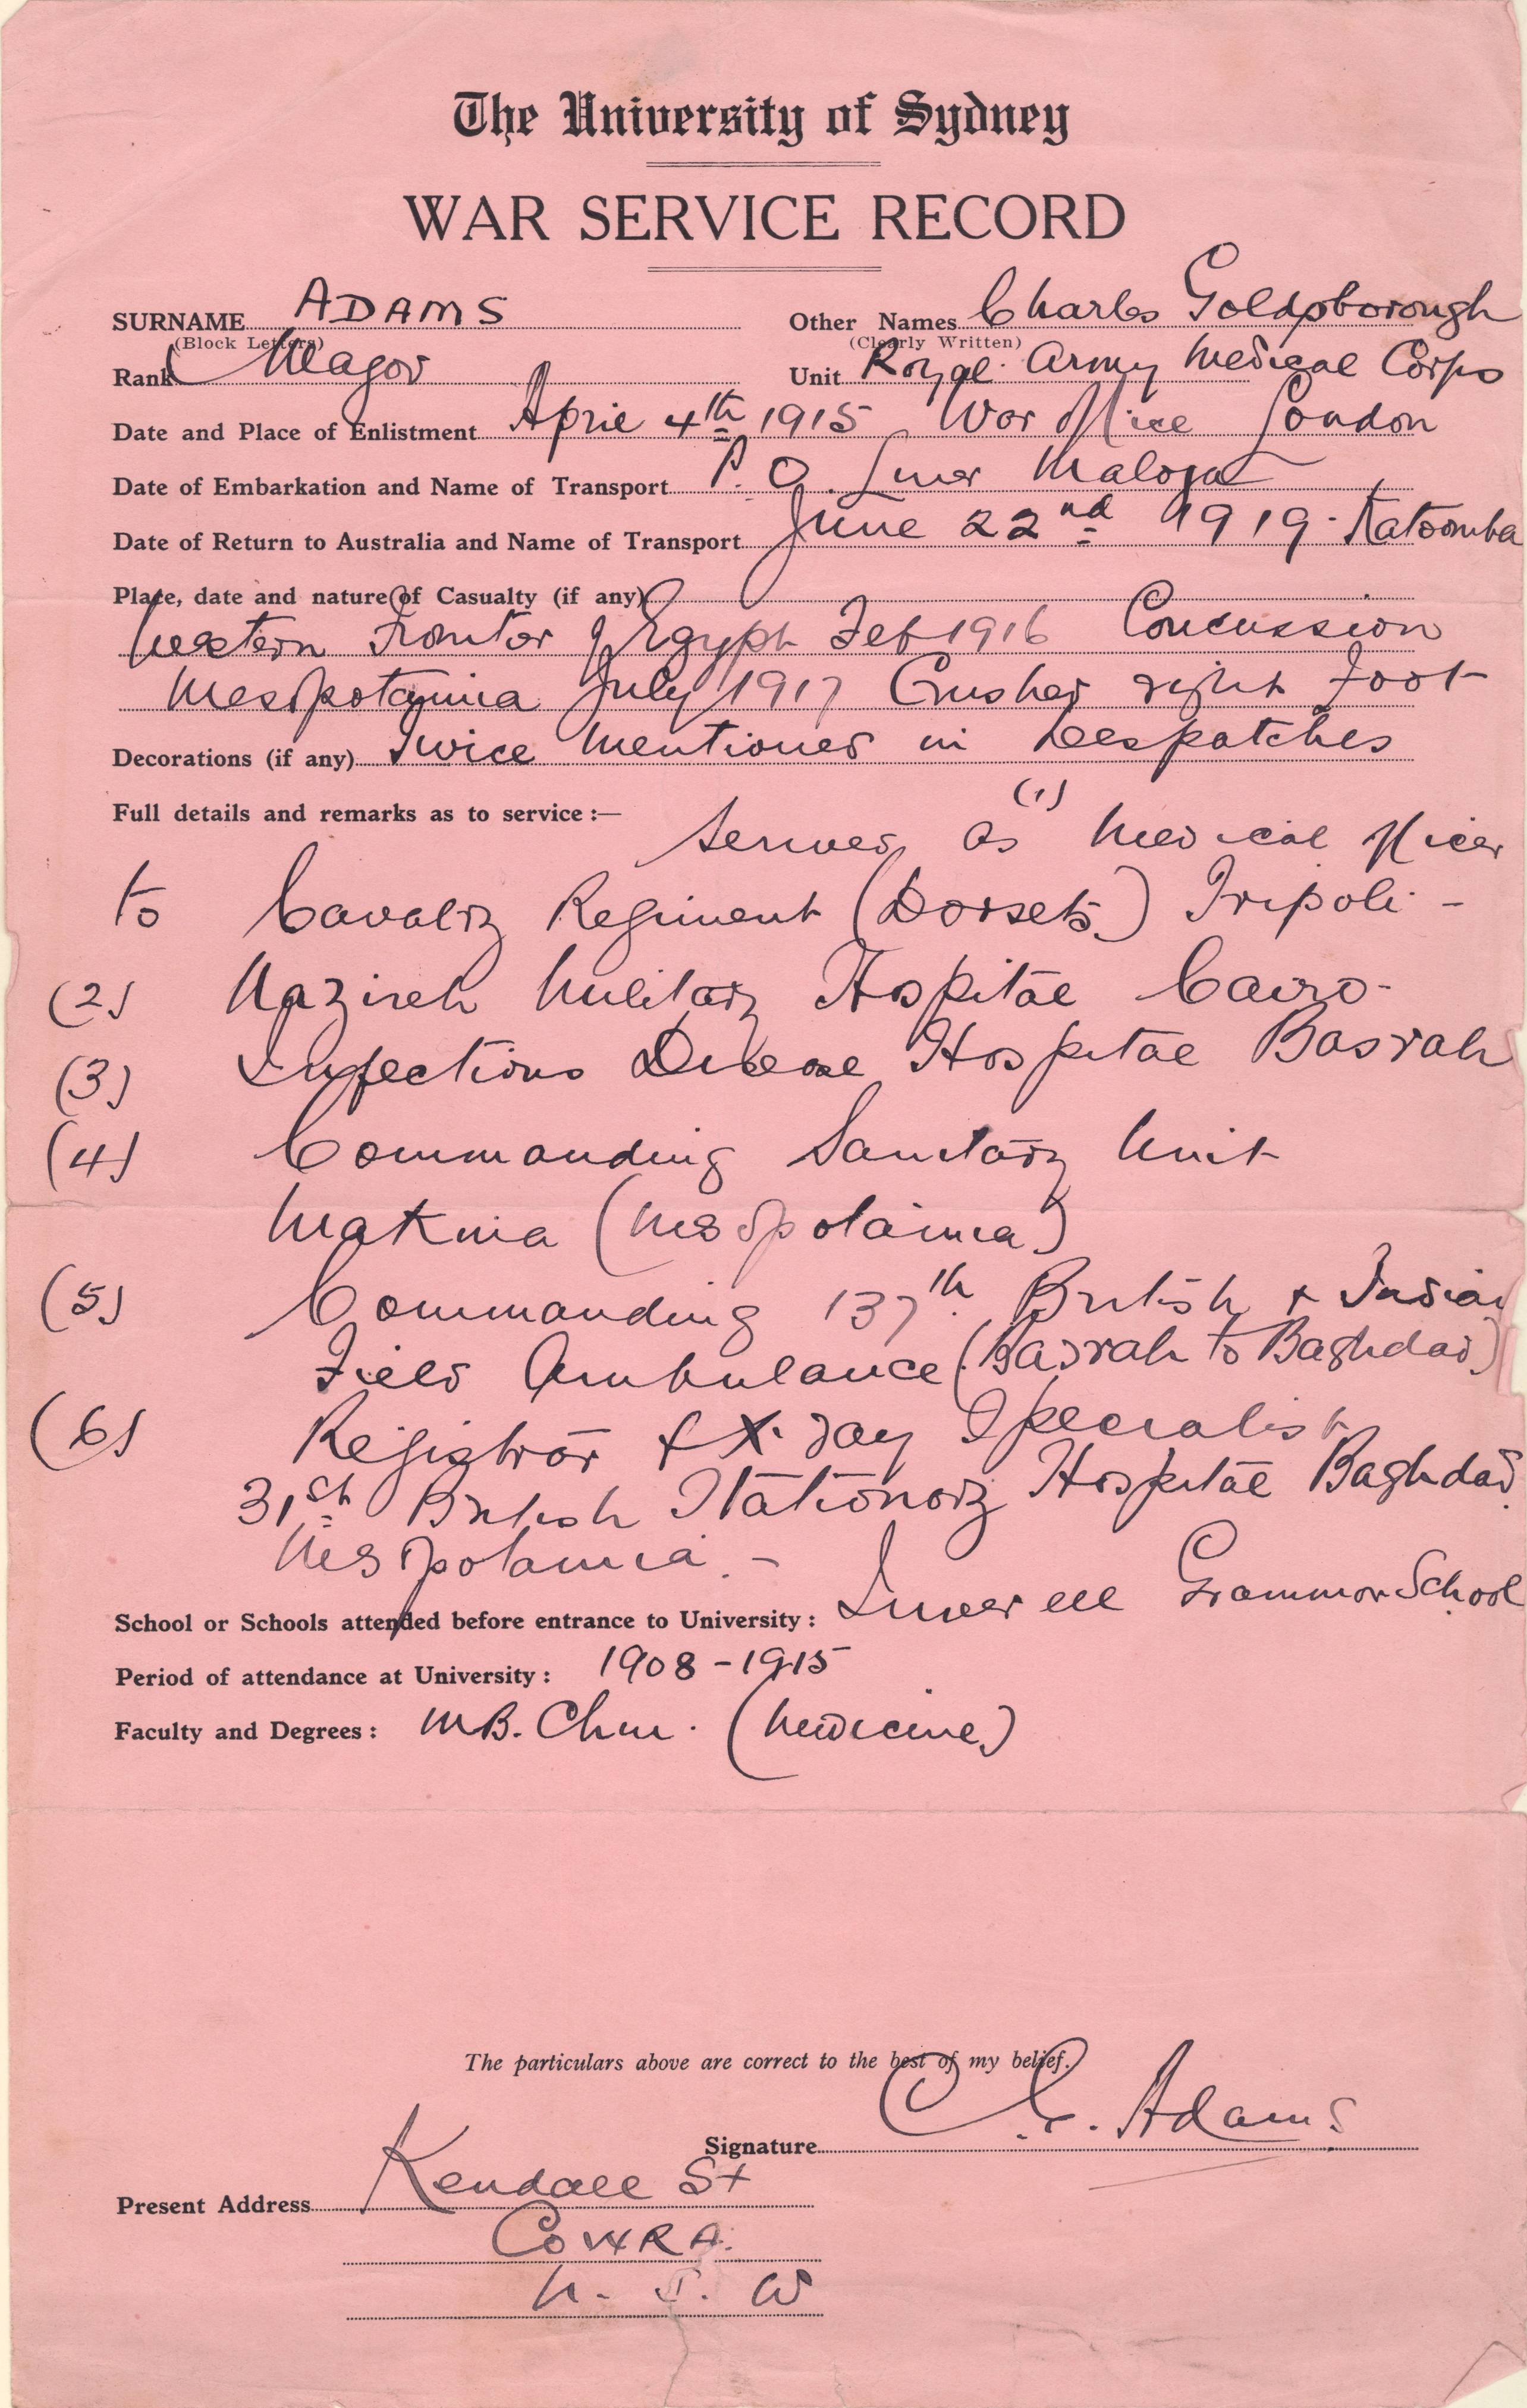 The University of Sydney
WAR SERVICE RECORD
SURNAME ADAMS Other Names Charles Goldsborough
(Block Letters) (Clearly Written)
Rank Major Unit Royal Army Medical Corps
Date and Place of Enlistment April 4th 1915 War Office London
Date of Embarkation and Name of Transport P. O. Liner Maloja
Date of Return to Australia and Name of Transport June 22nd 1919 - Katoomba
Place, date and nature of Casualty (if any)
Western Frontier of Egypt Feb 1916 Concussion
Mesopotamia July 1917 Crushed right foot
Decorations (if any) Twice Mentioned in Despatches
Full details and remarks as to service :— Served as (1) Medical Officer
to Cavalry Regiment (Dorsets) Tripoli -
(2) Nazireh Military Hospital Cairo -
(3) Infectious Disease Hospital Basrah
(4) Commanding Sanitary Unit
Makina (Mesopotamia)
(5) Commanding 137th British & Indian
Field Ambulance (Basrah to Baghdad)
(6) Registrar & X-ray Specialist
31st British Stationary Hospital Baghdad
Mesopotamia. -
School or Schools attended before entrance to University : Inverell Grammar School
Period of attendance at University : 1908 - 1915
Faculty and Degrees : M.B. Ch.M. (Medicine)
The particulars above are correct to the best of my belief.
Signature C. G. Adams
Present Address Kendall St
COWRA.
N. S. W